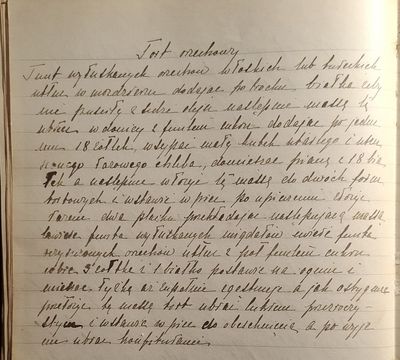 Tort orzechowy
Funt wyłuskanych orzechów włoskich lub tureckich
utłuc w moździerzu dodając po trochu białka żeby
nie puściły z siebie oleju następnie masę tę
utrzeć w donicy z funtem cukru dodając po jednemu
18 żółtek, wsypać mały kubek utartego i
razowego chleba, domieszać pianę z 18 bia
łek a następnie włożyć tę masę do dwóch form
tortowych i wstawić w piec, po upieczeniu złożyć
razem dwa placki przekładając następującą masą
funta wyłuskanych migdałów ćwierć funta
orzechów utłuc z pół funtem cukru
wbić 3 żółtka i 1 białko postawić na ogniu i
mieszać łyżką aż zupełnie zgęstnieje a jak ostygnie
przełożyć tę masą tort ubrać lukrem przezroczy-
stym i wstawić w piec do obeschnięcia, a po wyję
ciu ubrać konfiturami.